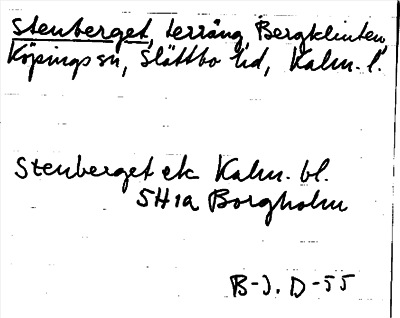 Stenberget, terräng, Bergklinten,
Köpings sn, Slättbo hd, Kalm. l.
Stenberget ek Kalm. bl.
5H1a Borgholm
B-J. D-55